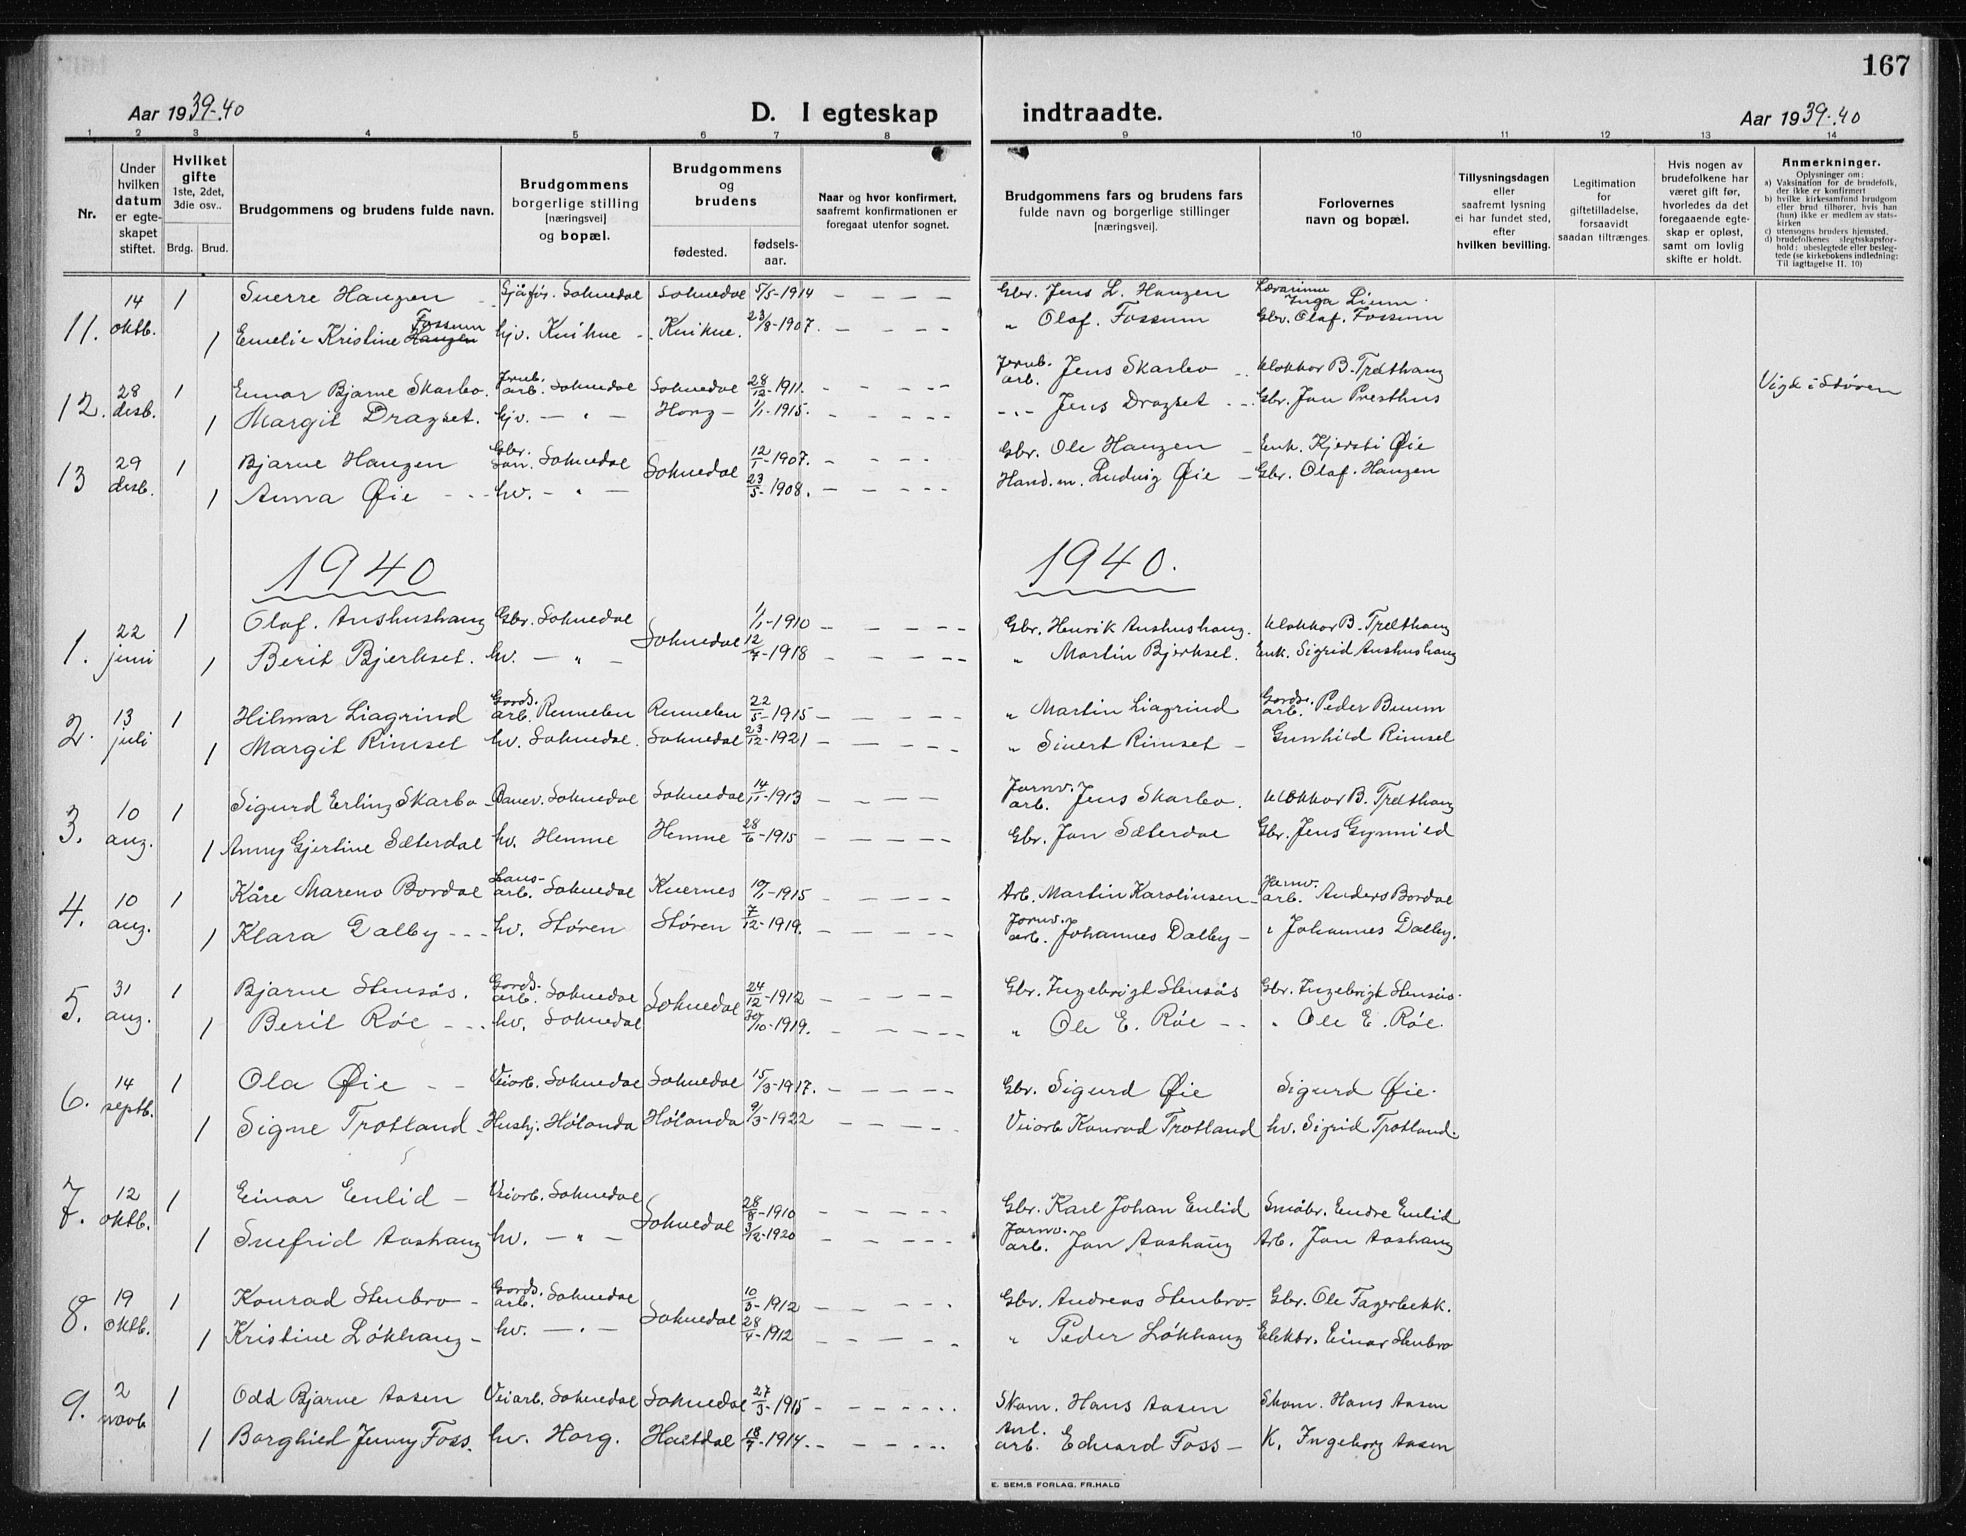 167
Aar 1939-40 D. I egteskap indtraadte. Aar 1939-40
1 2 3 4 5 6 7 8 9 10 11 12 13 14
Nr.
Under hvilken datum er egteskapet stiftet.
Hvilket gifte 1ste, 2det, 3die osv..
Brdg. Brud.
Brudgommens og brudens fulde navn.
Brudgommens borgerlige stilling [næringsvei] og bopæl.
Brudgommens og brudens
fødested. fødsels-aar.
Naar og hvor konfirmert, saafremt konfirmationen er foregaat utenfor sognet.
Brudgommens fars og brudens fars fulde navn og borgerlige stillinger [næringsvei].
Forlovernes navn og bopæl.
Tillysningsdagen eller saafremt lysning ei har fundet sted, efter hvilken bevilling.
Legitimation for giftetilladelse, forsaavidt saadan tiltrænges.
Hvis nogen av brudefolkene har været gift før, hvorledes da det foregaaende egteskap er opløst, samt om lovlig skifte er holdt.
Anmerkninger.
Oplysninger om:
a) Vaksination for de brudefolk, der ikke er konfirmert
b) hvilke kirkesamfund brudgom eller brud tilhører, hvis han (hun) ikke er medlem av statskirken
c) utensogns bruders hjemsted.
d) brudefolkenes slegtsskapsforhold: ubeslegtede eller beslegtede (se kirkebokens indledning: Til iagttagelse II. 10)
11. 14 oktb. 1 Sverre Haugen Sjåfør. Soknedal Soknedal 5/5-1914 Gbr. Jens L. Haugen Lærarinne Inga Lium
1 Emelie Kristine Haugen Fossum hjv. Kvikne Kvikne. 23/8-1907. " Olaf. Fossum Gbr. Olaf. Fossum
12. 28 desb. 1 Einar Bjarne Skarbo. Jernb. arb. Soknedal Soknedal 28/12-1911. Jernb. arb. Jens Skarbo Klokkar B. Trethaug Vigd i Støren
1 Margit Dragset. hjv. - " - Horg - 1/1-1915. - " - Jens Dragset Gbr. Jon Presthus
13 29 desb. 1 Bjarne Haugen Gbr. søn. Soknedal Soknedal 12/1-1907. Gbr. Ole Haugen Enk. Kjersti Øie
1 Anna Øie hv. - " - 23/5-1908. Hand.m. Ludvig Øie Gbr. Olaf. Haugen
1940 1940.
1. 22 juni 1 Olaf. Aushushaug Gbr. Soknedal Soknedal 1/1-1910 Gbr. Henrik Aushushaug. Klokkar B. Trethaug
1 Berit Bjerkset. hv. - " - 12/7-1918 " Martin Bjerkset. Enk. Sigrid Aushushaug
2. 13 juli 1 Hilmar Liagrind Gards. arb. Rennebu Rennebu 22/5-1915 " Martin Liagrind Gards. arb. Peder Buum
1 Margit Rimset hv. Soknedal. Soknedal 23/12-1921 " Sivert Rimset Gunhild Rimset
3. 10 aug. 1 Sigurd Erling Skarbo Banev. Soknedal Soknedal 14/11-1913 Jarnv. arb. Jens Skarbo. Klokkar B. Trethaug
1 Anny Gjertine Sæterdal hv. Hemne Hemne 28/6-1915 Gbr. Jon Sæterdal Gbr. Jens Gynnild
4. 10 aug. 1 Kåre Mareno Bordal Laus-arb. Soknedal Kvernes 10/1-1915 Arb. Martin Karolinsen Jarnv. arb. Anders Bordal
1 Klara Dalby hv. Støren Støren 7/12-1919. Jarnv. arb. Johannes Dalby " Johannes Dalby.
5. 31 aug. 1 Bjarne Stensås. Gards-arb. Soknedal Soknedal 24/12-1912 Gbr. Ingebrigt Stensås Gbr. Ingebrigt Stensås.
1 Berit Røe hv. Soknedal 30/10-1919. " Ole E. Røe " Ole E. Røe.
6. 14 septb. 1 Ola Øie Veiarb. Soknedal Soknedal 15/3-1917. Gbr. Sigurd Øie Sigurd Øie.
1 Signe Trotland Hushj. Hølanda Hølanda 9/3-1922 Veiarb Konrad Trotland hv. Sigrid Trotland.
7. 12 oktb. 1 Einar Enlid Veiarb. Soknedal Soknedal 28/8-1910 Gbr. Karl Johan Enlid Småbr. Endre Enlid
1 Snefrid Aashaug hv. - " - 3/12-1920 Jarnv. arb. Jon Aashaug Arb. Jon Aashaug
8. 19 oktb. 1 Konrad Stenbro Gards. arb. Soknedal Soknedal 10/3-1912 Gbr. Andreas Stenbro. Gbr. Ole Fagerbekk.
1 Kristine Løkhaug hv. - " - 28/4-1912 " Peder Løkhaug Elektr. Einar Stenbro
9. 2 novb 1 Odd Bjarne Aasen Veiarb. Soknedal Soknedal 27/3-1915 Skom. Hans Aasen Skom. Hans Aasen
1 Borghild Jenny Foss. hv. Horg. Haltdal 18/7-1914. Anl. arb. Edvard Foss K. Ingeborg Aasen
E. SEM.S FORLAG, FR.HALD